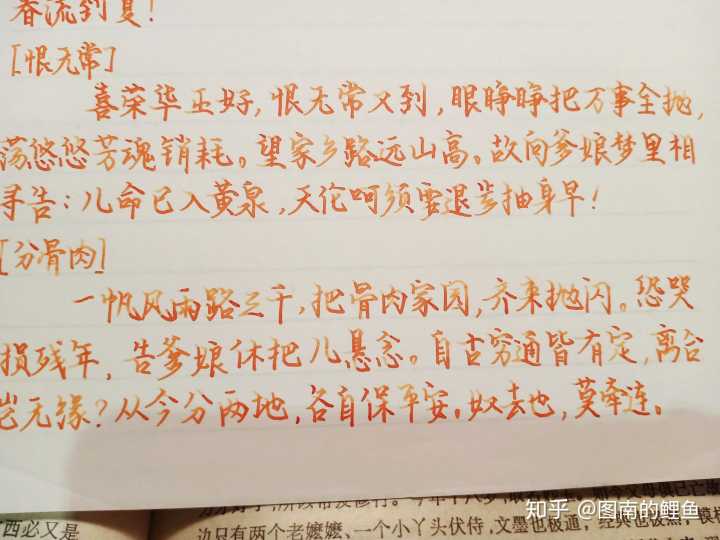 春流到夏！
[恨无常]
喜荣华正好，恨无常又到，眼睁睁把万事全抛，
荡悠悠芳魂销耗。望家乡路远山高。故向爹娘梦里相
寻告：儿命已入黄泉，天伦呵须要退步抽身早！
[分骨肉]
一帆风雨路三千，把骨肉家园，齐来抛闪。恐哭
损残年，告爹娘休把儿悬念。自古穷通皆有定，离合
岂无缘？从今分两地，各自保平安。奴去也，莫牵连。
西必又是
边只有两个老嬷嬷、一个小丫头伏侍，文墨也极通，经典也极熟，模
知乎 @图南的鲤鱼